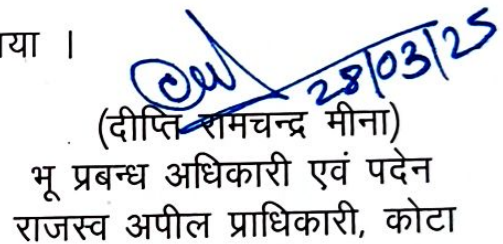 गया ।
28/03/25
(दीप्ति रामचन्द्र मीना)
भू प्रबन्ध अधिकारी एवं पदेन
राजस्व अपील प्राधिकारी, कोटा